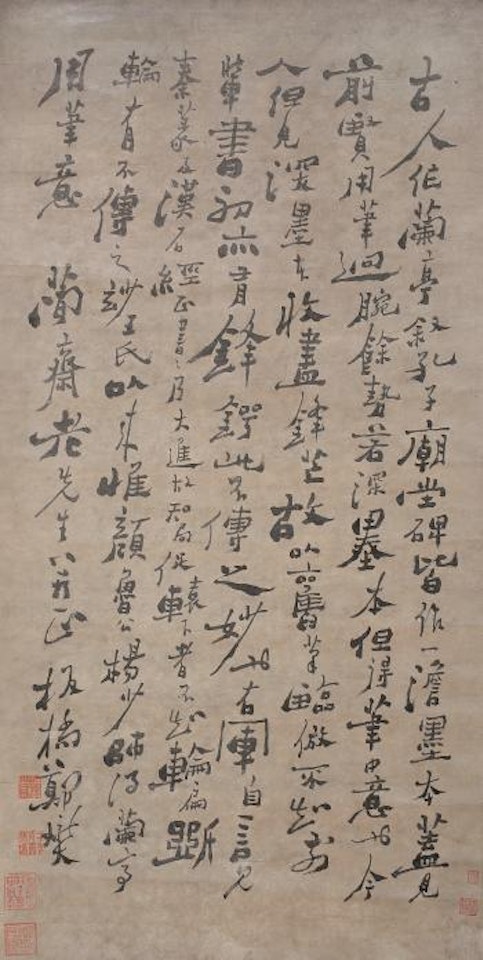 古人作蘭亭敘孔子廟堂碑皆作一澹墨本蓋見
前賢用筆迴腕餘勢若深墨本但得筆中意也今
人但見深墨本收盡鋒芒故以舊筆臨倣不知前
輩書初亦有鋒鍔此不傳之妙也右軍自言見
秦篆及漢石經正書書乃大進故知局促轅下者不知輪扁斵
輪有不傳之妙王氏以來惟顏魯公楊少師得蘭亭
用筆意 蘭齋老先生正 板橋鄭燮